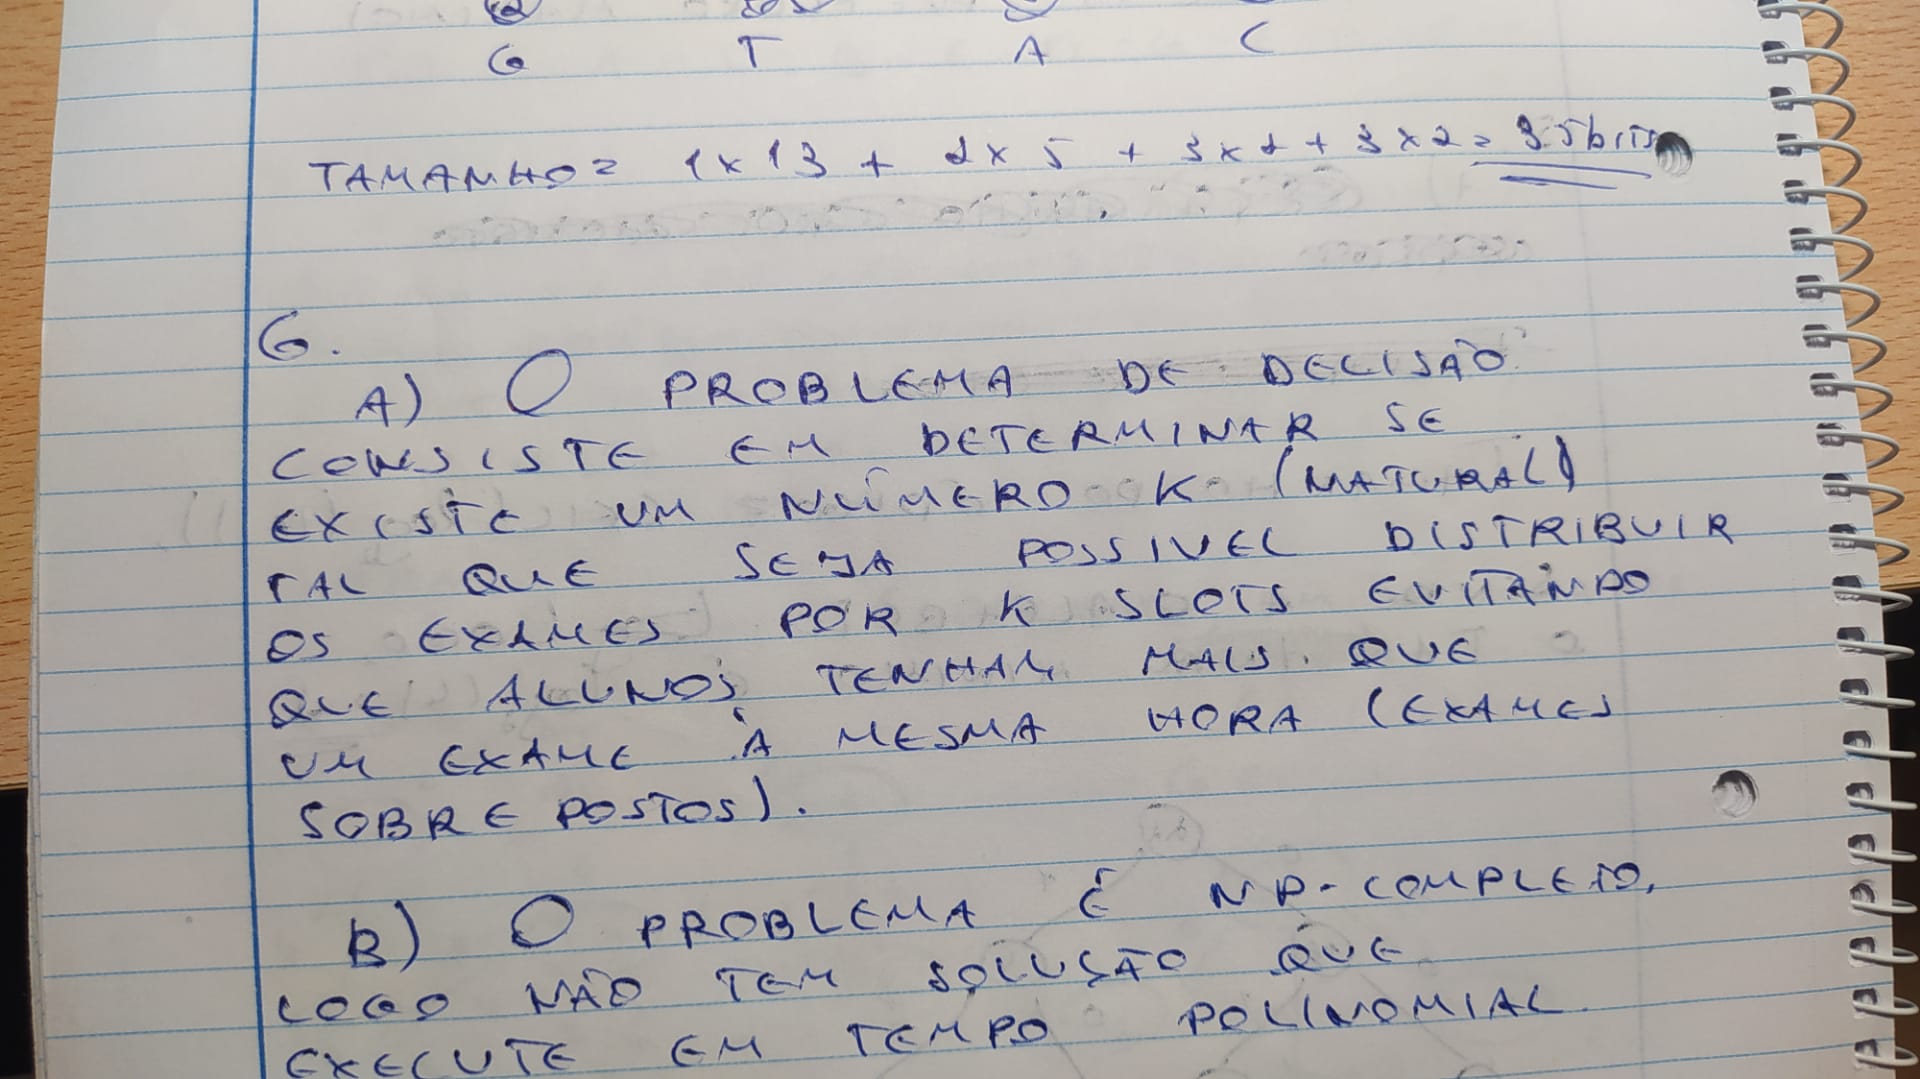 G T A C
TAMANHO = 1x13 + 2x5 + 3x2 + 3x2 = 35bits
6.
A) O PROBLEMA DE DECISÃO
CONSISTE EM DETERMINAR SE
EXISTE UM NÚMERO K (NATURAL)
TAL QUE SEJA POSSIVEL DISTRIBUIR
OS EXAMES POR K SLOTS EVITANDO
QUE ALUNOS TENHAM MAIS QUE
UM EXAME À MESMA HORA (EXAMES
SOBREPOSTOS).
B) O PROBLEMA É NP-COMPLETO,
LOGO NÃO TEM SOLUÇÃO QUE
EXECUTE EM TEMPO POLINOMIAL.